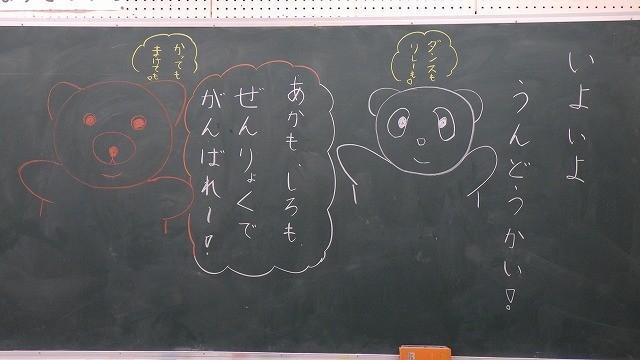 いよいよ
うんどうかい！
ダンスも
リレーも。
あかも、しろも、
ぜんりょくで
がんばれー！
かっても
まけても。